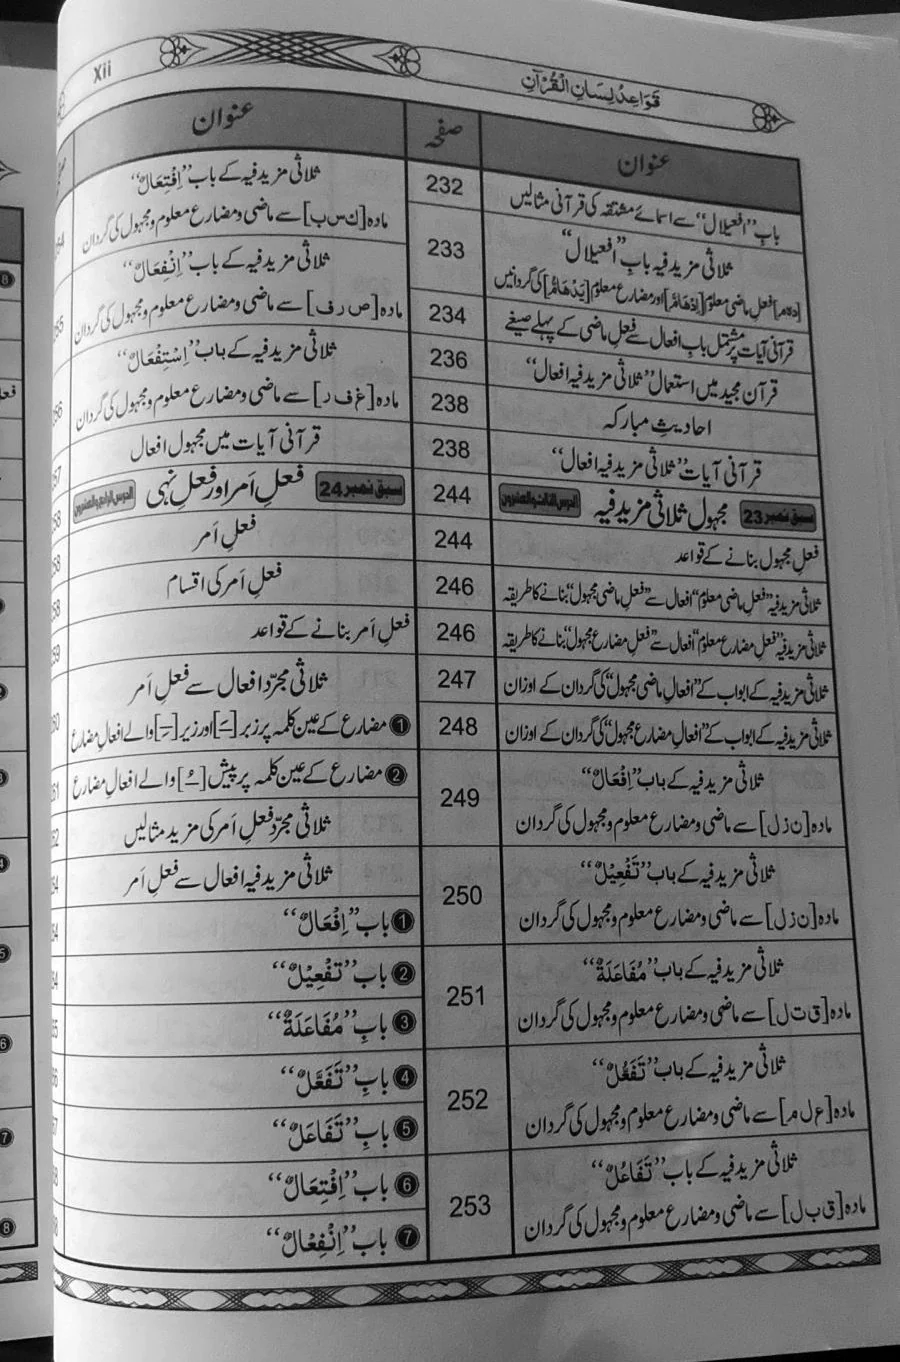 Xii
قَوَاعِدُ لِسَانِ الْقُرْآنِ
عنوان
صفحہ
باب ”افعیلال“ سے اسمائے مشتقہ کی قرآنی مثالیں
232
ثلاثی مزید فیہ بابِ ”افعیلال“
[دہم] فعل ماضی معلوم [اِدْهَامَّ] اور مضارع معلوم [يَدْهَامُّ] کی گردانیں
233
قرآنی آیات پر مشتمل بابِ افعال سے فعلِ ماضی کے پہلے صیغے
234
قرآن مجید میں استعمال ”ثلاثی مزید فیہ افعال“
236
احادیثِ مبارکہ
238
قرآنی آیات ”ثلاثی مزید فیہ افعال“
238
سبق نمبر 23 مجہول ثلاثی مزید فیہ الدرس الثالث والعشرون
244
فعلِ مجہول بنانے کے قواعد
244
ثلاثی مزید فیہ ”فعلِ ماضی معلوم“ افعال سے ”فعلِ ماضی مجہول“ بنانے کا طریقہ
246
ثلاثی مزید فیہ ”فعلِ مضارع معلوم“ افعال سے ”فعلِ مضارع مجہول“ بنانے کا طریقہ
246
ثلاثی مزید فیہ کے ابواب کے ”افعالِ ماضی مجہول“ کی گردان کے اوزان
247
ثلاثی مزید فیہ کے ابواب کے ”افعالِ مضارع مجہول“ کی گردان کے اوزان
248
ثلاثی مزید فیہ کے باب ”اِفْعَالٌ“
مادہ [ن ز ل] سے ماضی و مضارع معلوم و مجہول کی گردان
249
ثلاثی مزید فیہ کے باب ”تَفْعِيْلٌ“
مادہ [ن ز ل] سے ماضی و مضارع معلوم و مجہول کی گردان
250
ثلاثی مزید فیہ کے باب ”مُفَاعَلَةٌ“
مادہ [ق ت ل] سے ماضی و مضارع معلوم و مجہول کی گردان
251
ثلاثی مزید فیہ کے باب ”تَفَعُّلٌ“
مادہ [ع ل م] سے ماضی و مضارع معلوم و مجہول کی گردان
252
ثلاثی مزید فیہ کے باب ”تَفَاعُلٌ“
مادہ [ق ب ل] سے ماضی و مضارع معلوم و مجہول کی گردان
253
عنوان
ثلاثی مزید فیہ کے باب ”اِفْتِعَالٌ“
مادہ [ک س ب] سے ماضی و مضارع معلوم و مجہول کی گردان
ثلاثی مزید فیہ کے باب ”اِنْفِعَالٌ“
مادہ [ص ر ف] سے ماضی و مضارع معلوم و مجہول کی گردان
ثلاثی مزید فیہ کے باب ”اِسْتِفْعَالٌ“
مادہ [غ ف ر] سے ماضی و مضارع معلوم و مجہول کی گردان
قرآنی آیات میں مجہول افعال
سبق نمبر 24 فعلِ اَمر اور فعلِ نہی الدرس الرابع والعشرون
فعلِ اَمر
فعلِ اَمر کی اقسام
فعلِ اَمر بنانے کے قواعد
ثلاثی مجرّد افعال سے فعلِ اَمر
❶ مضارع کے عین کلمہ پر زبر [ـَـ] اور زیر [ـِـ] والے افعالِ مضارع
❷ مضارع کے عین کلمہ پر پیش [ـُـ] والے افعالِ مضارع
ثلاثی مجرّد فعلِ اَمر کی مزید مثالیں
ثلاثی مزید فیہ افعال سے فعلِ اَمر
❶ باب ”اِفْعَالٌ“
❷ باب ”تَفْعِيْلٌ“
❸ بابِ ”مُفَاعَلَةٌ“
❹ بابِ ”تَفَعَّلٌ“
❺ بابِ ”تَفَاعَلٌ“
❻ باب ”اِفْتِعَالٌ“
❼ باب ”اِنْفِعَالٌ“